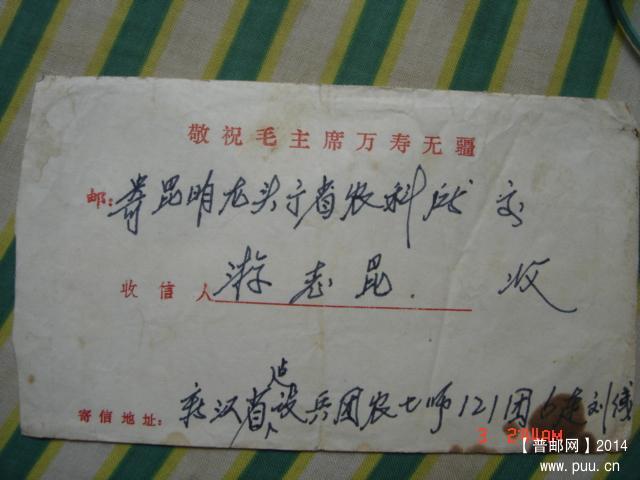 敬祝毛主席万寿无疆
邮：寄昆明龙头于省农科所 交
收信人 游志昆. 收
寄信地址： 新汉省建设兵团农七师121团 刘
【普邮网】2014
www.puu.cn